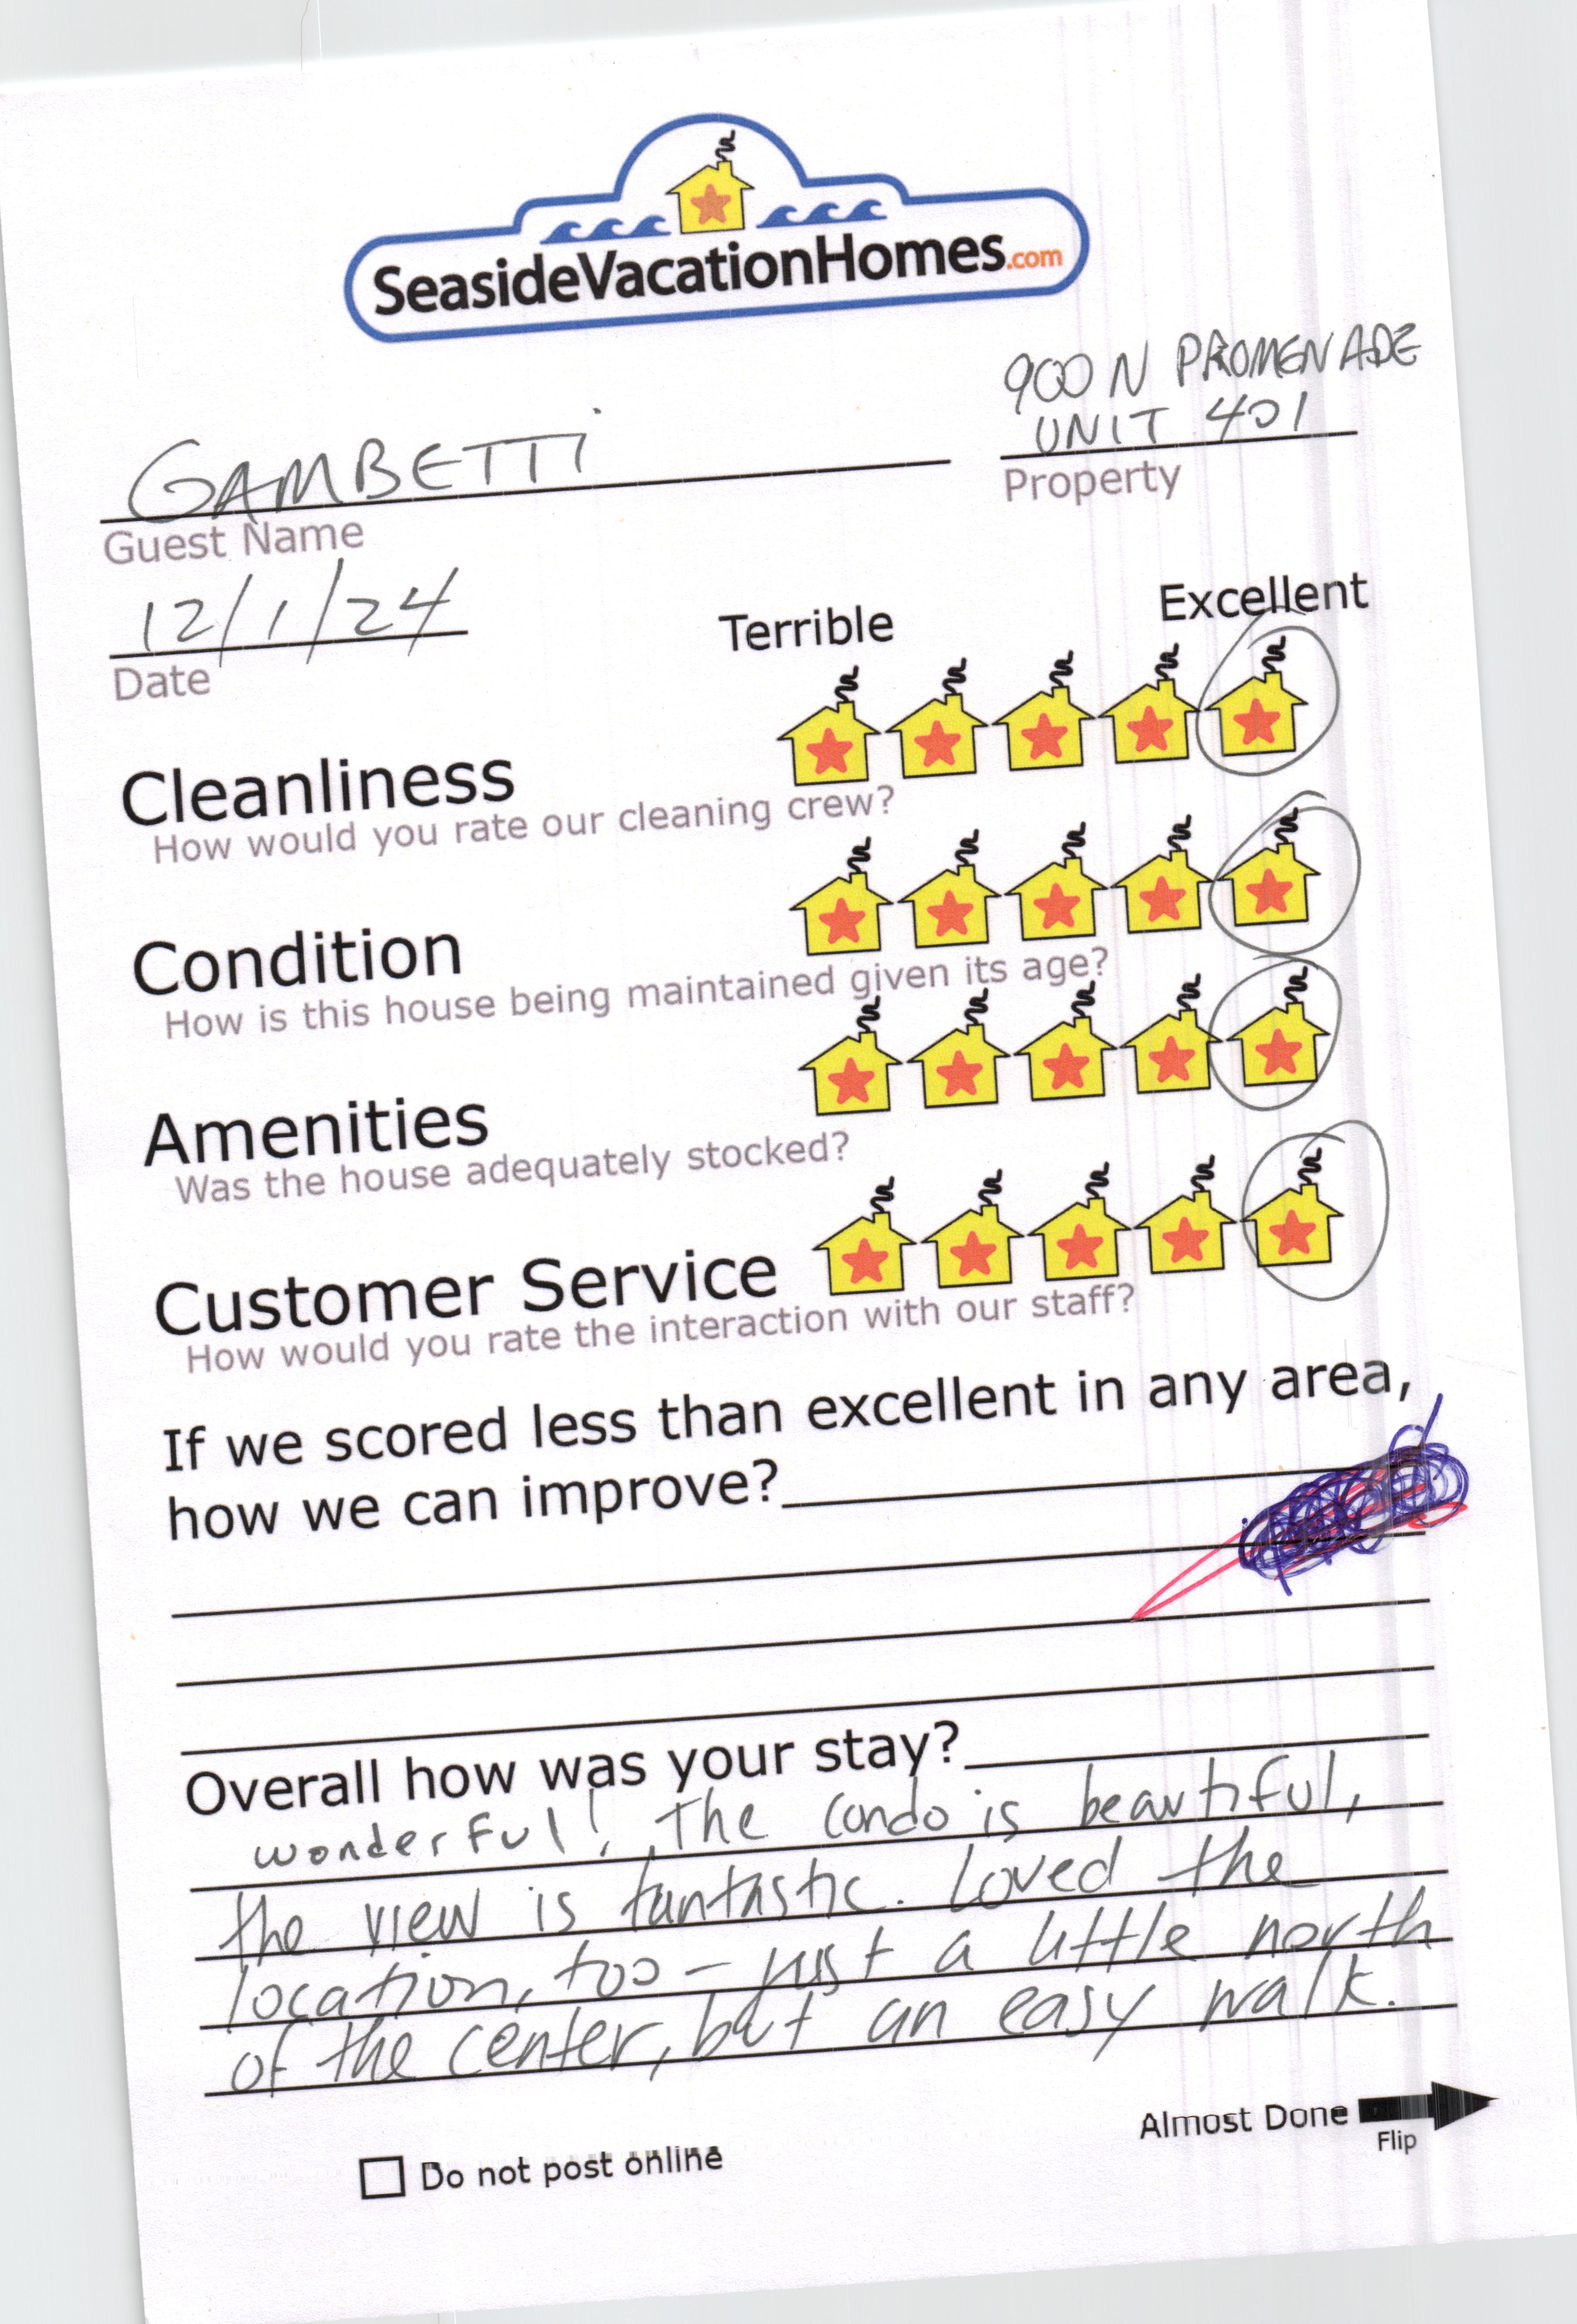 SeasideVacationHomes.com
900 N PROMENADE
UNIT 401
GAMBETTi
Property
Guest Name
12/1/24
Date
Terrible
Excellent
Cleanliness
How would you rate our cleaning crew?
Condition
How is this house being maintained given its age?
Amenities
Was the house adequately stocked?
Customer Service
How would you rate the interaction with our staff?
If we scored less than excellent in any area,
how we can improve?
Overall how was your stay?
wonderful! The condo is beautiful,
the view is fantastic. Loved the
location, too - just a little north
of the center, but an easy walk.
Almost Done
Flip
Do not post online